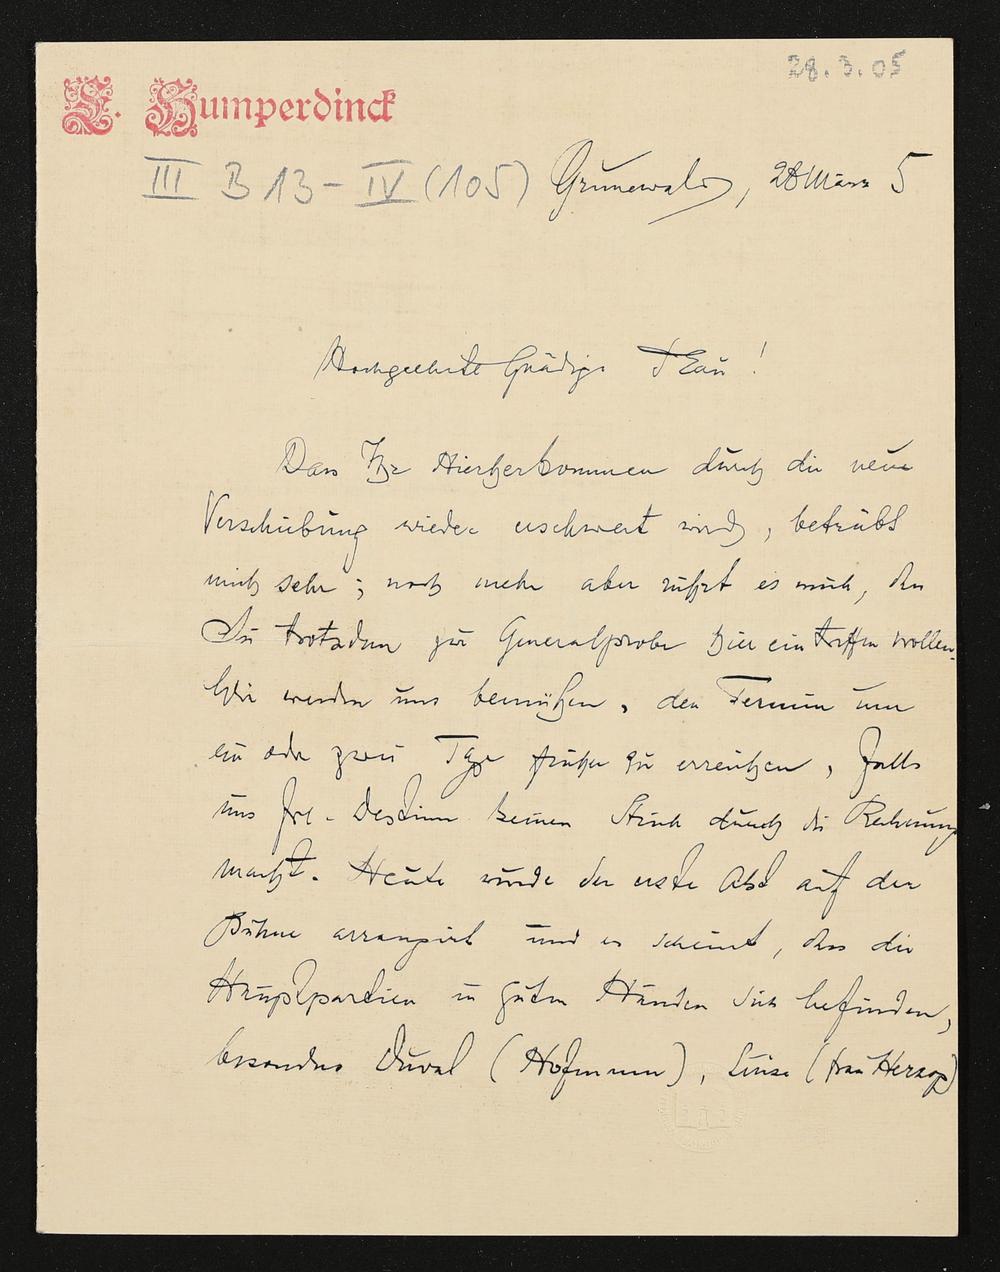 28.3.05
E. Humperdinck
III B 13 - IV (105)
Grunewald, 28 März 5
Hochgeehrte Gnädige Frau!
Dass Ihr Hierherkommen durch die neue
Verschiebung wieder erschwert wird, betrübt
mich sehr; noch mehr aber rührt es mich, dass
Sie trotzdem zur Generalprobe hier eintreffen wollen.
Wir werden uns bemühen, den Termin um
ein oder zwei Tage früher zu erreichen, falls
uns Frl. Destinn keinen Strich durch die Rechnung
macht. Heute wurde der erste Akt auf der
Bühne arrangirt und es scheint, dass die
Hauptpartien in guten Händen sich befinden,
besonders Duval (Hofmann), Luise (Frau Herzog)